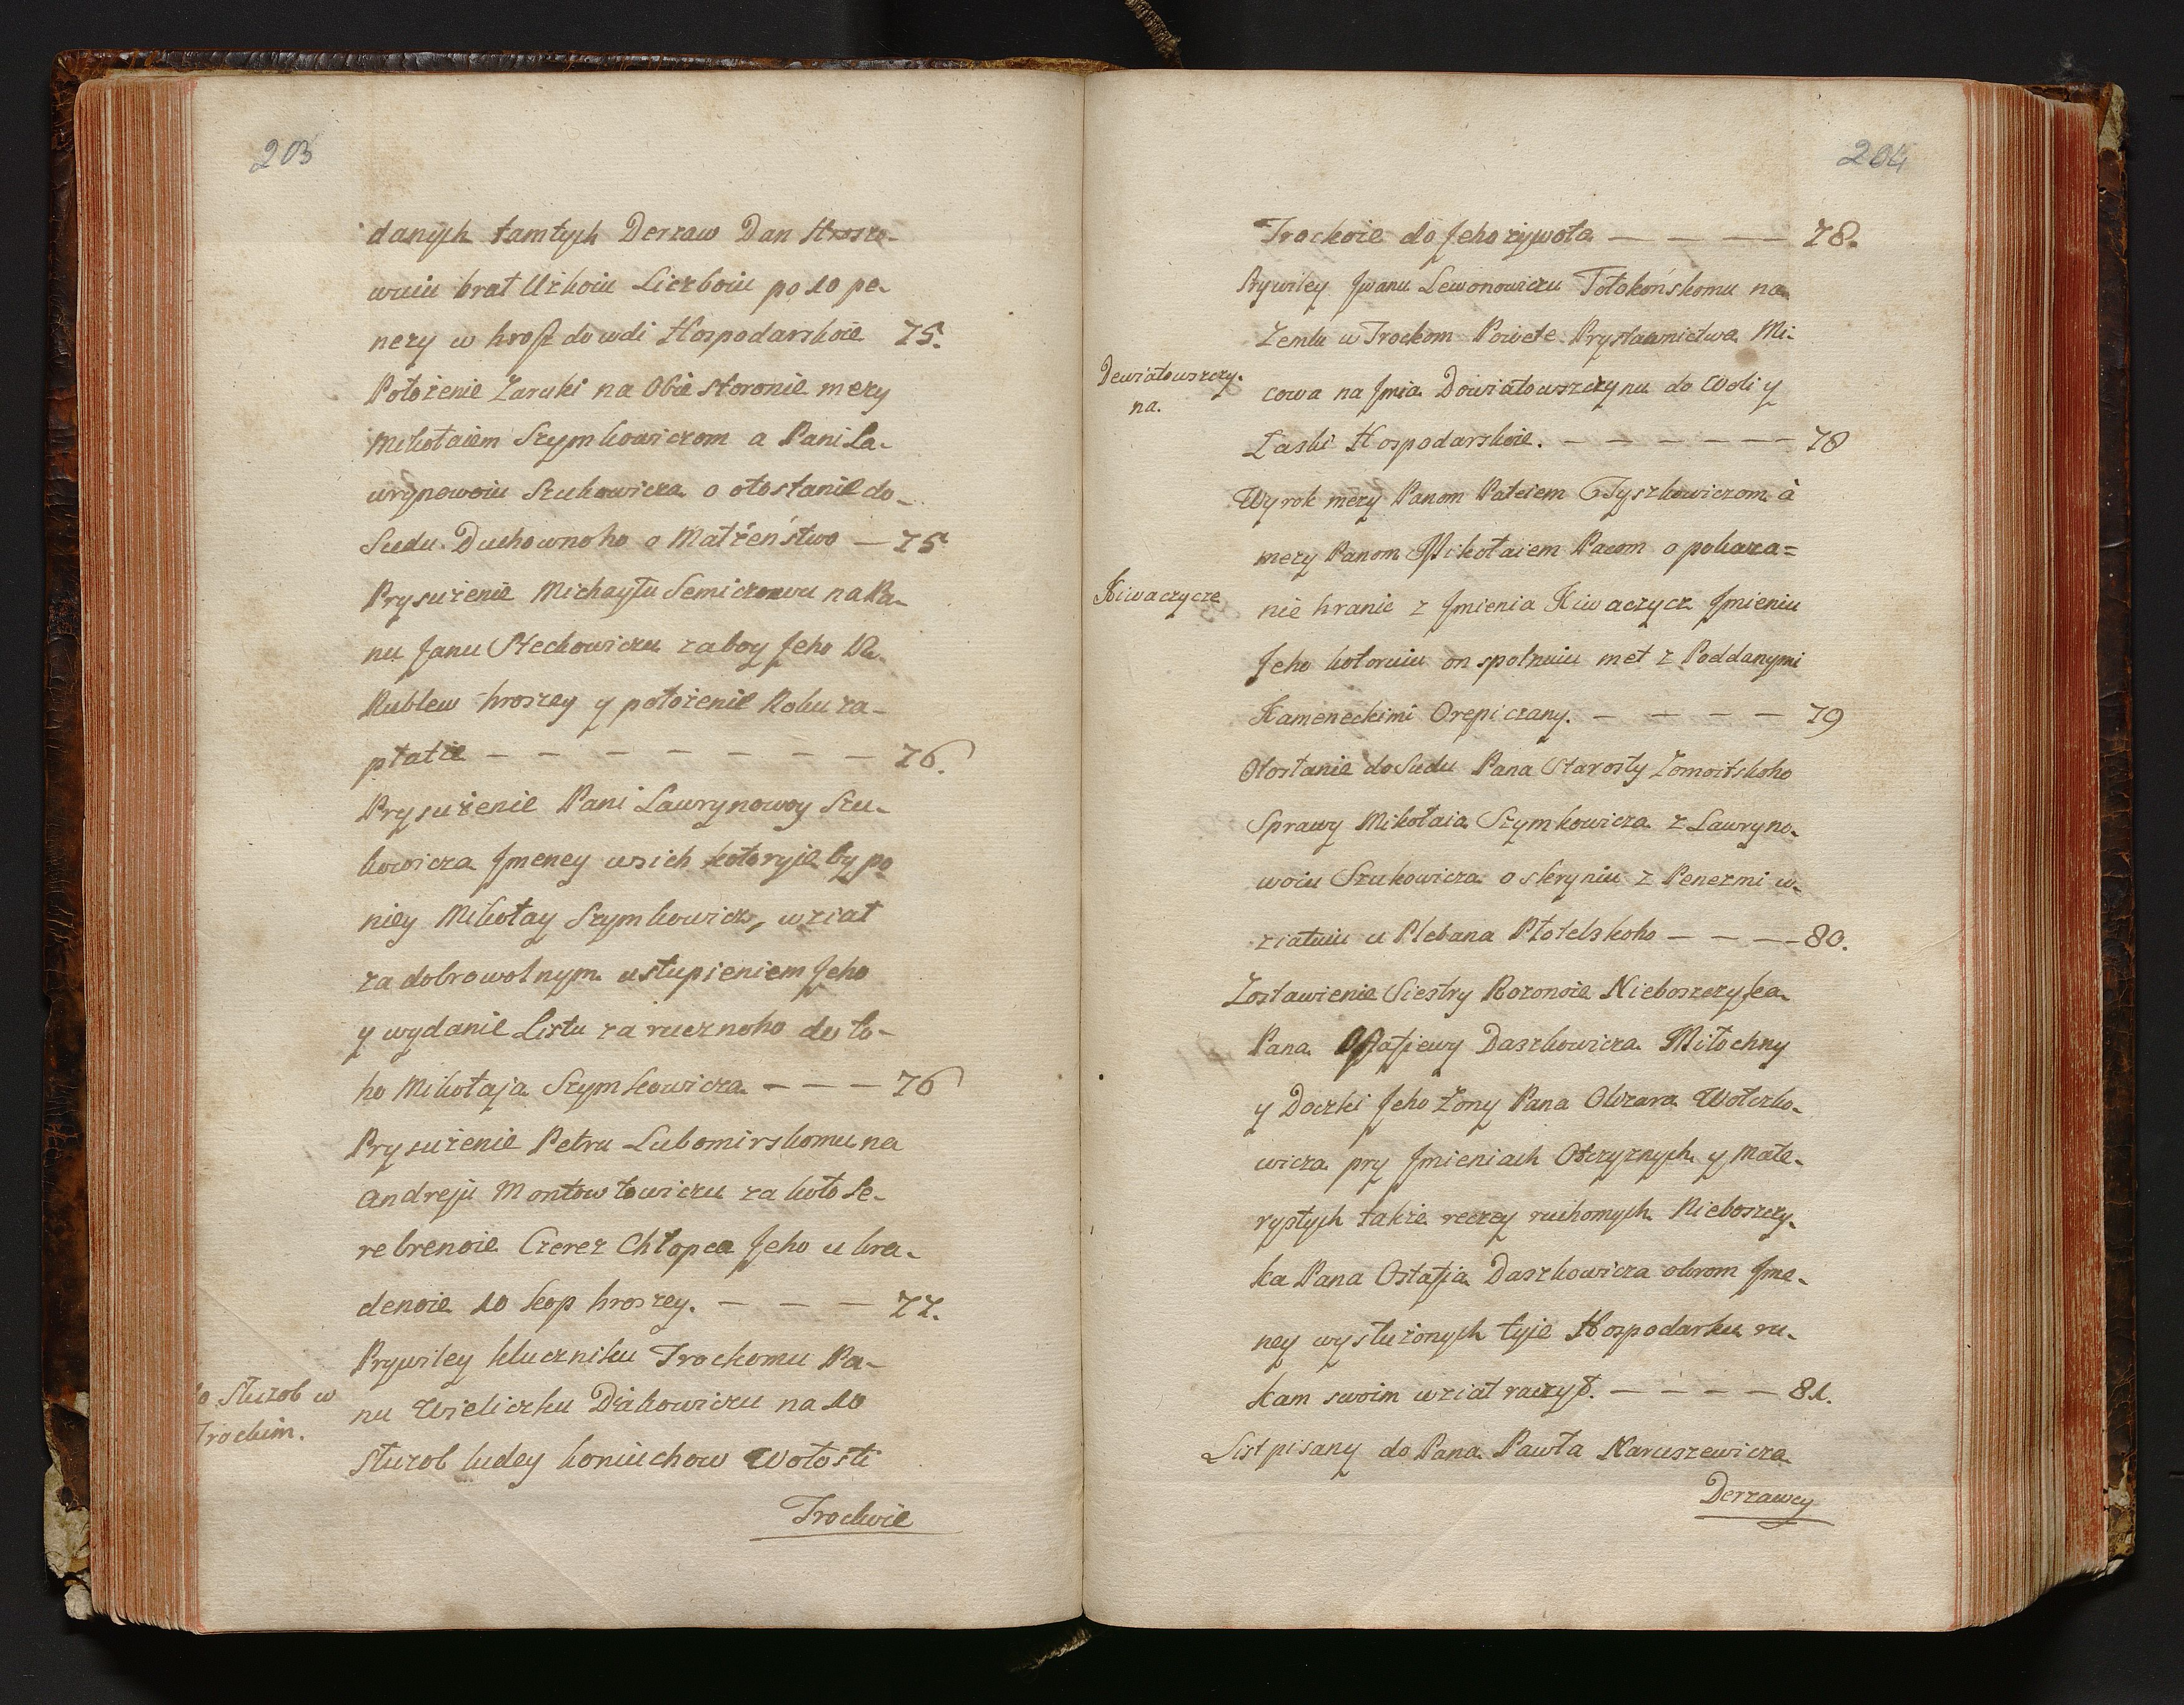 203
danych tamtych Derzaw Dan Hroszo-
wuiu brat Uzkoiu Liczboiu po 10 pe-
nezy w hrosz do wdi Hospodarskoie 75.
Położenie Zaruki na Obie storonie mezy
Mikołaiem Szymkowiczom a Pani La-
wrynowoiu Szukowicza o otosłanie do-
Sudu Duchownoho o Małżeństwo — 75
Prysużenie Michayłu Semiczowu na Pa-
nu Janu Stechowiczu za boy Jeho 12.
Rublew hroszey y położenie Roku za-
płatie — — — — — — — 76.
Prysużenie Pani Lawrynowoy Szu-
kowicza Jmeney wsich kotoryje by po
niey Mikołay Szymkowicz, wziat
za dobrowolnym ustupieniem Jeho
y wydanie Listu zarucznoho do to-
ho Mikołaja Szymkowicza — — — 76
Prysużenie Petru Lubomirskomu na
Andreju Montowtowiczu za koło Se-
rebrenoie Czerez Chłopca Jeho ukra-
denoie 10 kop hroszey. — — — 77.
Prywiley kluczniku Trockomu Pa-
10 Służob w
Trockim.
nu Wieliczku Diakowiczu na 10
służob ludey koniuchow Wołosti
Trockoie
204
Trockoie do Jeho żywota — — — — 78.
Prywiley Jwanu Lewonowiczu Tołokońskomu na
Zemlu w Trockom Powete Prystawnictwa Mi-
Dewiatowszczy-
na.
cowa na Jmia Dowiatowszczynu do Woli y
Łaski Hospodarskoie. — — — — — — 78
Wyrok mezy Panom Pateiem Tyszkowiczom à
mezy Panom Mikołaiem Pacom o pokaza=
Kiwaczycze
nie hranic z Jmienia Kiwaczycz Jmieniu
Jeho kotoruiu on spolnuiu met z Poddanymi
Kameneckimi Orepiczany. — — — — 79
Otosłanie do Sudu Pana Starosty Zomoitskoho
Sprawy Mikołaia Szymkowicza z Lawryno-
woiu Szukowicza o skryniu z Penezmi w-
ziatuiu u Plebana Płotelskoho — — — 80.
Zostawienie Siestry Rozonoie Nieboszczyka
Pana Ostafiewy Daszkowicza Miłochny
y Doczki Jeho Żony Pana Olizara Wołczko-
wicza pry Jmieniach Otczyznych y Mate-
rystych także reczey ruchomych Nieboszczy-
ka Pana Ostafia Daszkowicza okrom Jme-
ney wysłużonych tyje Hospodarku ru-
kam swoim wziat raczył. — — — — 81.
List pisany do Pana Pawła Naruszewicza
Derzawcy